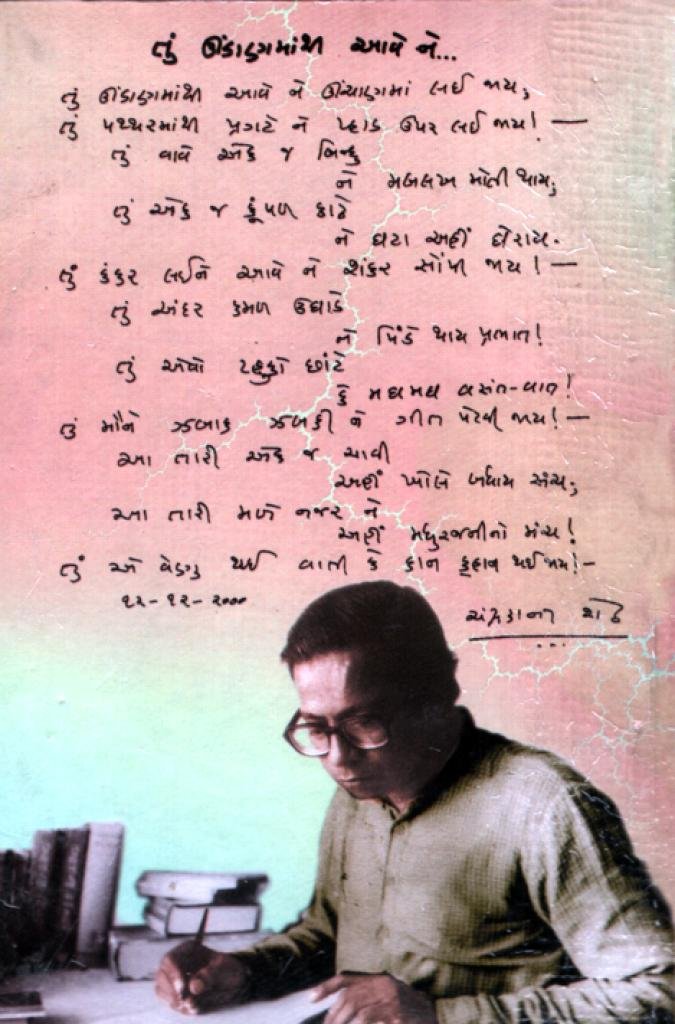 તું ઊંડાણમાંથી આવે ને...
તું ઊંડાણમાંથી આવે ને ઊંચાણમાં લઈ જાય;
તું પથ્થરમાંથી પ્રગટે ને પ્હાડ ઉપર લઈ જાય! —
તું વાવે એક જ બિન્દુ
ને મબલખ મોતી થાય;
તું એક જ કૂંપળ કાઢે
ને ઘટા અહીં ઘેરાય.
તું કંકર લઈને આવે ને શંકર સોંપી જાય! —
તું અંદર કમળ ઉઘાડે
ને પિંડે થાય પ્રભાત!
તું એવો ટહુકો છાંટે
કે મઘમઘ વસંત-વાત!
તું મૌને ઝબાક ઝબકી ને ગીત પેરવી જાય! —
આ તારી એક જ ચાવી
અહીં ખોલે બધાય સંચ;
આ તારી મળે નજર ને
અહીં મધુરજનીનો મંચ!
તું એ વેણુ થઈ વાતી કે કાન કૂહાન થઈ જાય! –
૧૨-૧૨-૨૦૦૦
ચંદ્રકાન્ત શેઠ